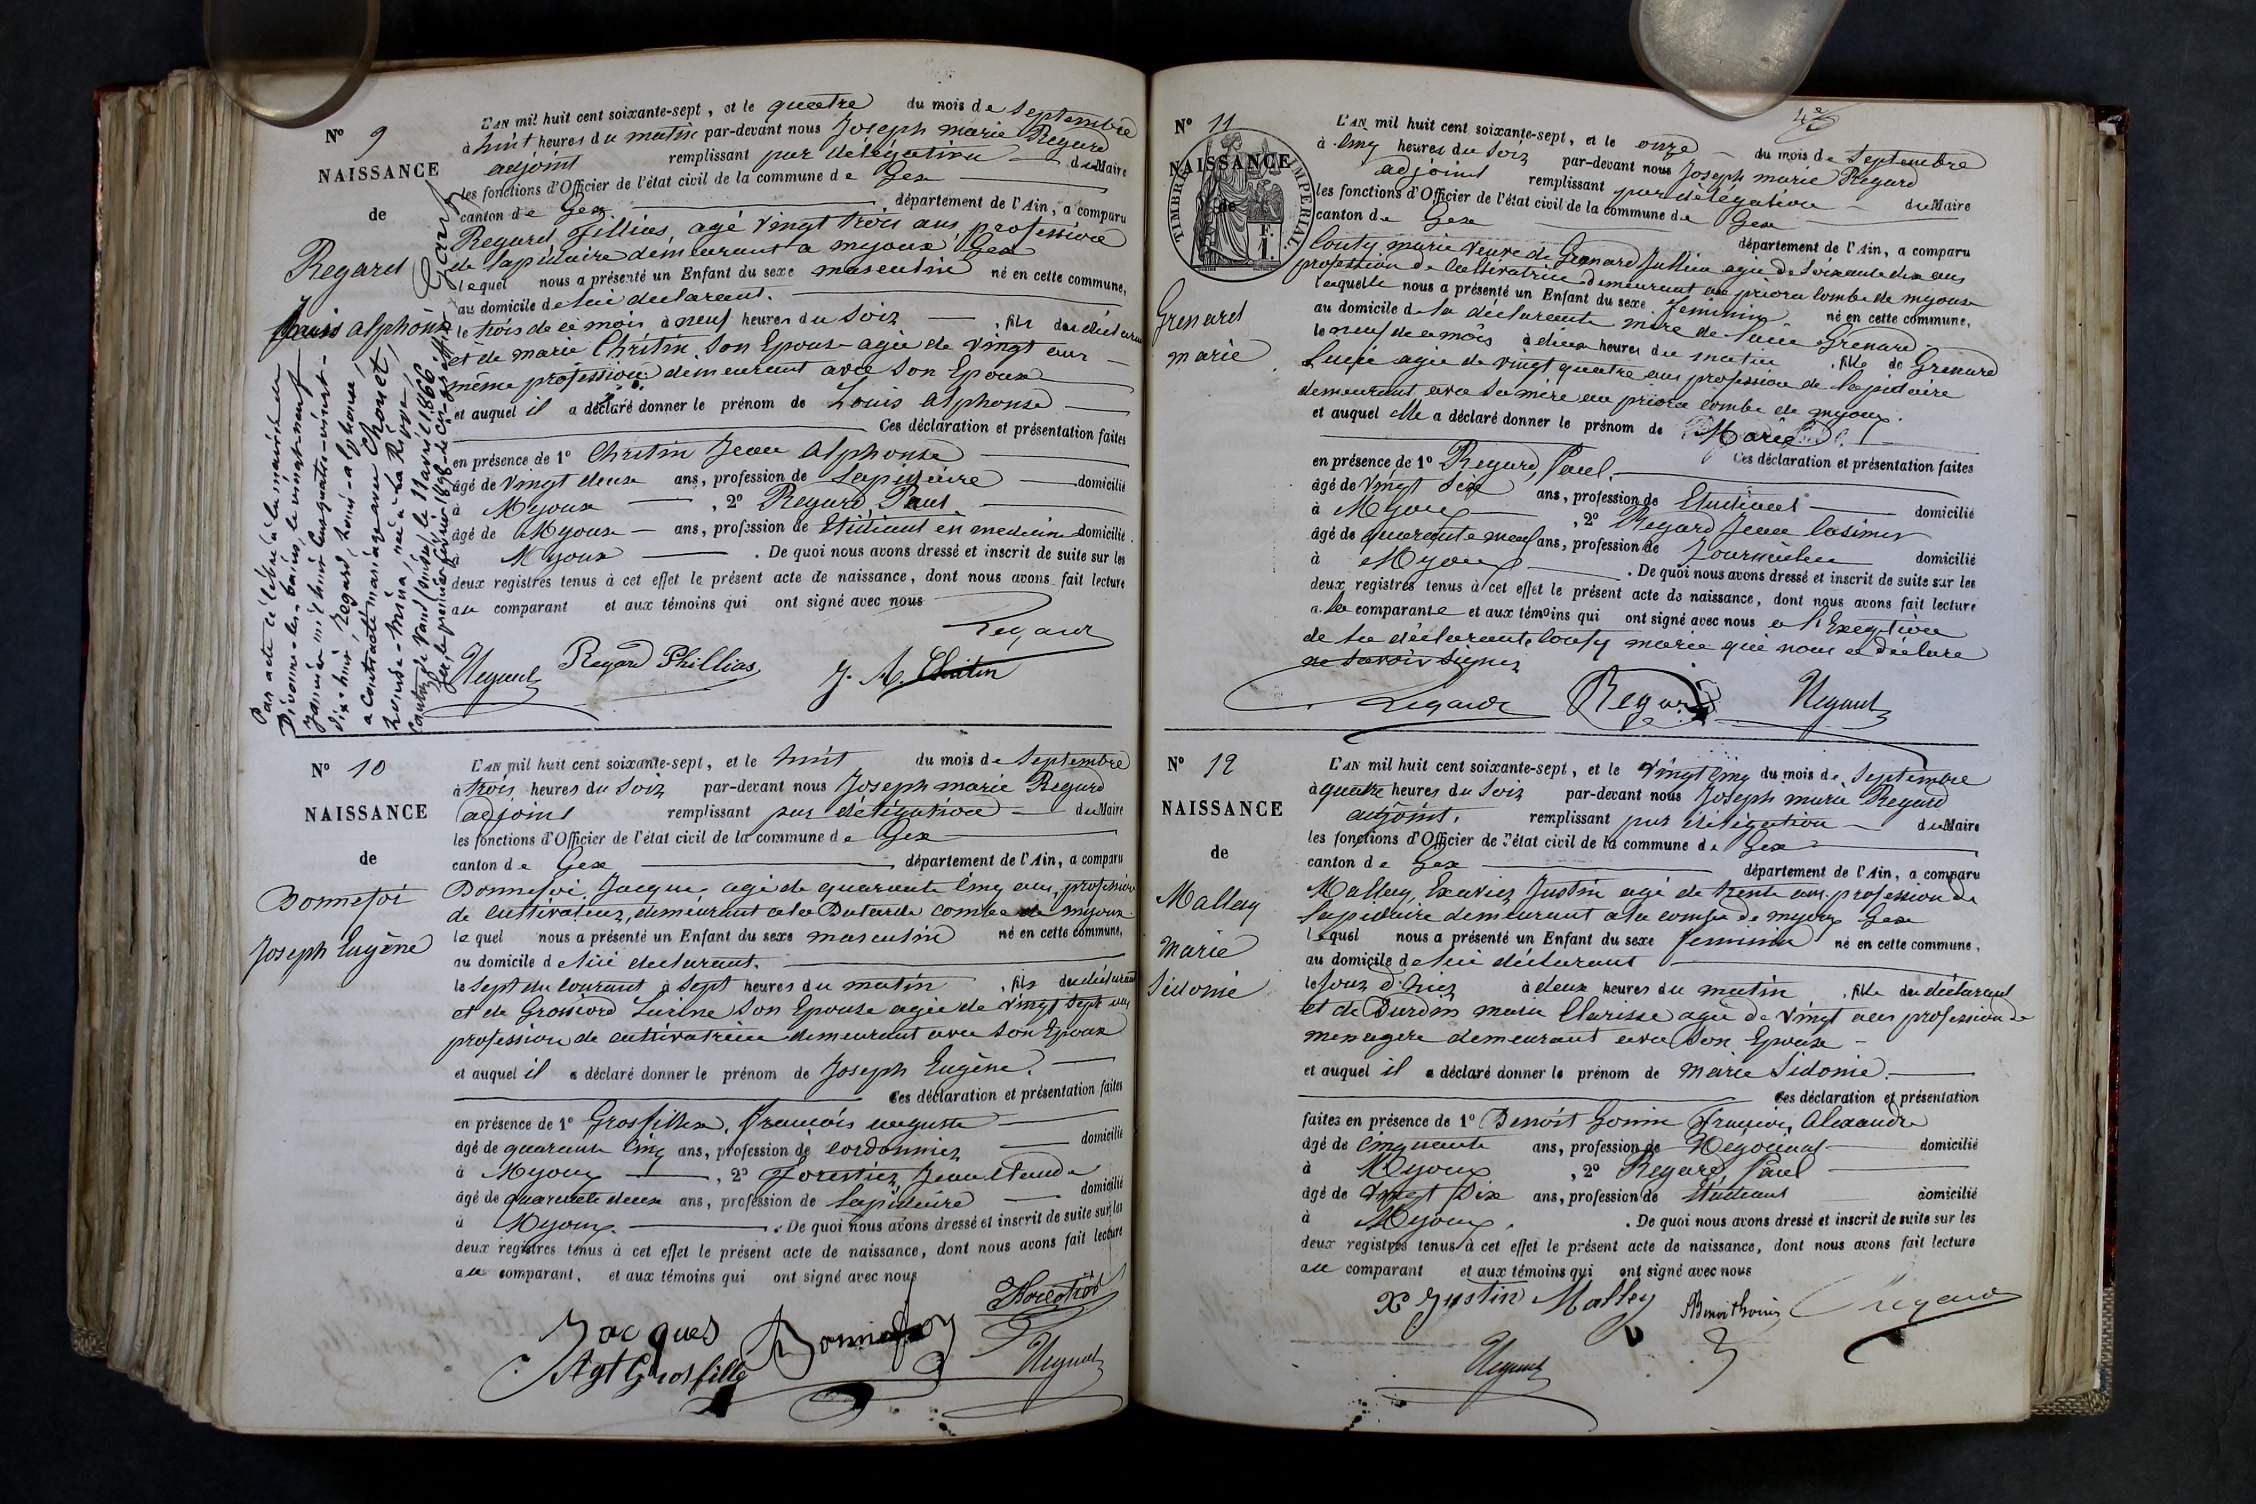 N° 9
NAISSANCE
de
Regard
Louis alphonse
L'AN mil huit cent soixante-sept, et le quatre du mois de Septembre
à huit heures du matin par-devant nous Joseph marie Regard
adjoint remplissant par délégation du Maire
les fonctions d'Officier de l'état civil de la commune de Gex
canton de Gex département de l'Ain, a comparu
Regard, fillias, agé vingt trois ans, profession
de lapidaire demeurant a myoux, Gex
lequel nous a présenté un Enfant du sexe masculin né en cette commune,
au domicile de lui declarant.
le trois de ce mois à neuf heures du Soir, fils du déclarant
et de marie Christin Son Epouse agée de vingt ans
même profession demeurant avec Son Epoux
et auquel il a déclaré donner le prénom de Louis alphonse
Ces déclaration et présentation faites
en présence de 1° Christin Jean alphonse
âgé de vingt deux ans, profession de Lapidaire domicilié
à Myoux, 2° Regard, Paul
âgé de Myoux ans, profession de Etudiant en medecine domicilié
à Myoux. De quoi nous avons dressé et inscrit de suite sur les
deux registres tenus à cet effet le présent acte de naissance, dont nous avons fait lecture
au comparant et aux témoins qui ont signé avec nous
Regard
Regard Phillias J. A. Christin
Par acte célébré à la mairie de
Divonne-les-bains, le vingt-neuf
janvier mil huit cent quatre-vingt-
dix-huit Regard, Louis-alphonse,
a contracté mariage avec Chouet,
Louise-Mina, née à La Rippe,
canton de Vaud (Suisse) le 11 avril 1866
Gex, le premier février 1898. Le Greffier
N° 10
NAISSANCE
de
Bonnefoi
Joseph Eugène
L'AN mil huit cent soixante-sept, et le huit du mois de Septembre
à trois heures du Soir par-devant nous Joseph marie Regard
adjoint remplissant par délégation du Maire
les fonctions d'Officier de l'état civil de la commune de Gex
canton de Gex département de l'Ain, a comparu
Bonnefoi, Jacques agé de quarante cinq ans, profession
de cultivateur, demeurant a la Batarde combe de myoux
lequel nous a présenté un Enfant du sexe masculin né en cette commune,
au domicile de lui declarant.
le sept du courant à Sept heures du matin, fils du déclarant
et de Grossiord Lucine Son Epouse agée de vingt Sept ans
profession de cultivatrice demeurant avec Son Epoux
et auquel il a déclaré donner le prénom de Joseph Eugène.
Ces déclaration et présentation faites
en présence de 1° Grosfillex, François auguste
âgé de quarante cinq ans, profession de cordonnier domicilié
à Myoux, 2° Forestier Jean Claude
âgé de quarante deux ans, profession de lapidaire domicilié
à Myoux. De quoi nous avons dressé et inscrit de suite sur les
deux registres tenus à cet effet le présent acte de naissance, dont nous avons fait lecture
au comparant, et aux témoins qui ont signé avec nous
Jacques Bonnefoy
Agt Grosfille
N° 11
NAISSANCE
de
TIMBRE IMPERIAL
1 F.
Grenard
marie
L'AN mil huit cent soixante-sept, et le onze du mois de Septembre
à cinq heures du Soir par-devant nous Joseph marie Regard
adjoint remplissant par délégation du Maire
les fonctions d'Officier de l'état civil de la commune de Gex
canton de Gex département de l'Ain, a comparu
Couty marie veuve de Grenard Jullien agée de Soixante dix ans
profession de Cultivatrice demeurant au priora combe de myoux
laquelle nous a présenté un Enfant du sexe feminin né en cette commune,
au domicile de la déclarante mère de Lucie Grenard
le neuf de ce mois à deux heures du matin, fille de Grenard
Lucie agée de vingt quatre ans profession de lapidaire
demeurant avec Sa mère au priora combe de myoux.
et auquel elle a déclaré donner le prénom de Marie
Ces déclaration et présentation faites
en présence de 1° Regard, Paul.
âgé de vingt Six ans, profession de Etudiant domicilié
à Myoux, 2° Regard Jean Casimir
âgé de quarante neuf ans, profession de Journalier domicilié
à Myoux. De quoi nous avons dressé et inscrit de suite sur les
deux registres tenus à cet effet le présent acte de naissance, dont nous avons fait lecture
a la comparante et aux témoins qui ont signé avec nous a l'Exception
de la déclarante Couty marie qui nous a déclaré
ne Savoir Signer
Regard Regard
N° 12
NAISSANCE
de
Malley
Marie
Sidonie
L'AN mil huit cent soixante-sept, et le vingt cinq du mois de Septembre
à quatre heures du Soir par-devant nous Joseph marie Regard
adjoint, remplissant par délégation du Maire
les fonctions d'Officier de l'état civil de la commune de Gex
canton de Gex département de l'Ain, a comparu
Malley, Exavier Justin agé de trente ans profession de
lapidaire demeurant a la combe de myoux Gex
lequel nous a présenté un Enfant du sexe feminin né en cette commune,
au domicile de lui déclarant
le Jour d'hier à deux heures du matin, fille du déclarant
et de Burdin marie Clarisse agée de vingt ans profession de
menagere demeurant avec Son Epoux
et auquel il a déclaré donner le prénom de Marie Sidonie.
Ces déclaration et présentation
faites en présence de 1° Benoit Gonin François, Alexandre
âgé de Cinquante ans, profession de Négociant domicilié
à Myoux, 2° Regard, Paul
âgé de vingt Six ans, profession de Etudiant domicilié
à Myoux. De quoi nous avons dressé et inscrit de suite sur les
deux registres tenus à cet effet le présent acte de naissance, dont nous avons fait lecture
au comparant et aux témoins qui ont signé avec nous
X Justin Malley Regard